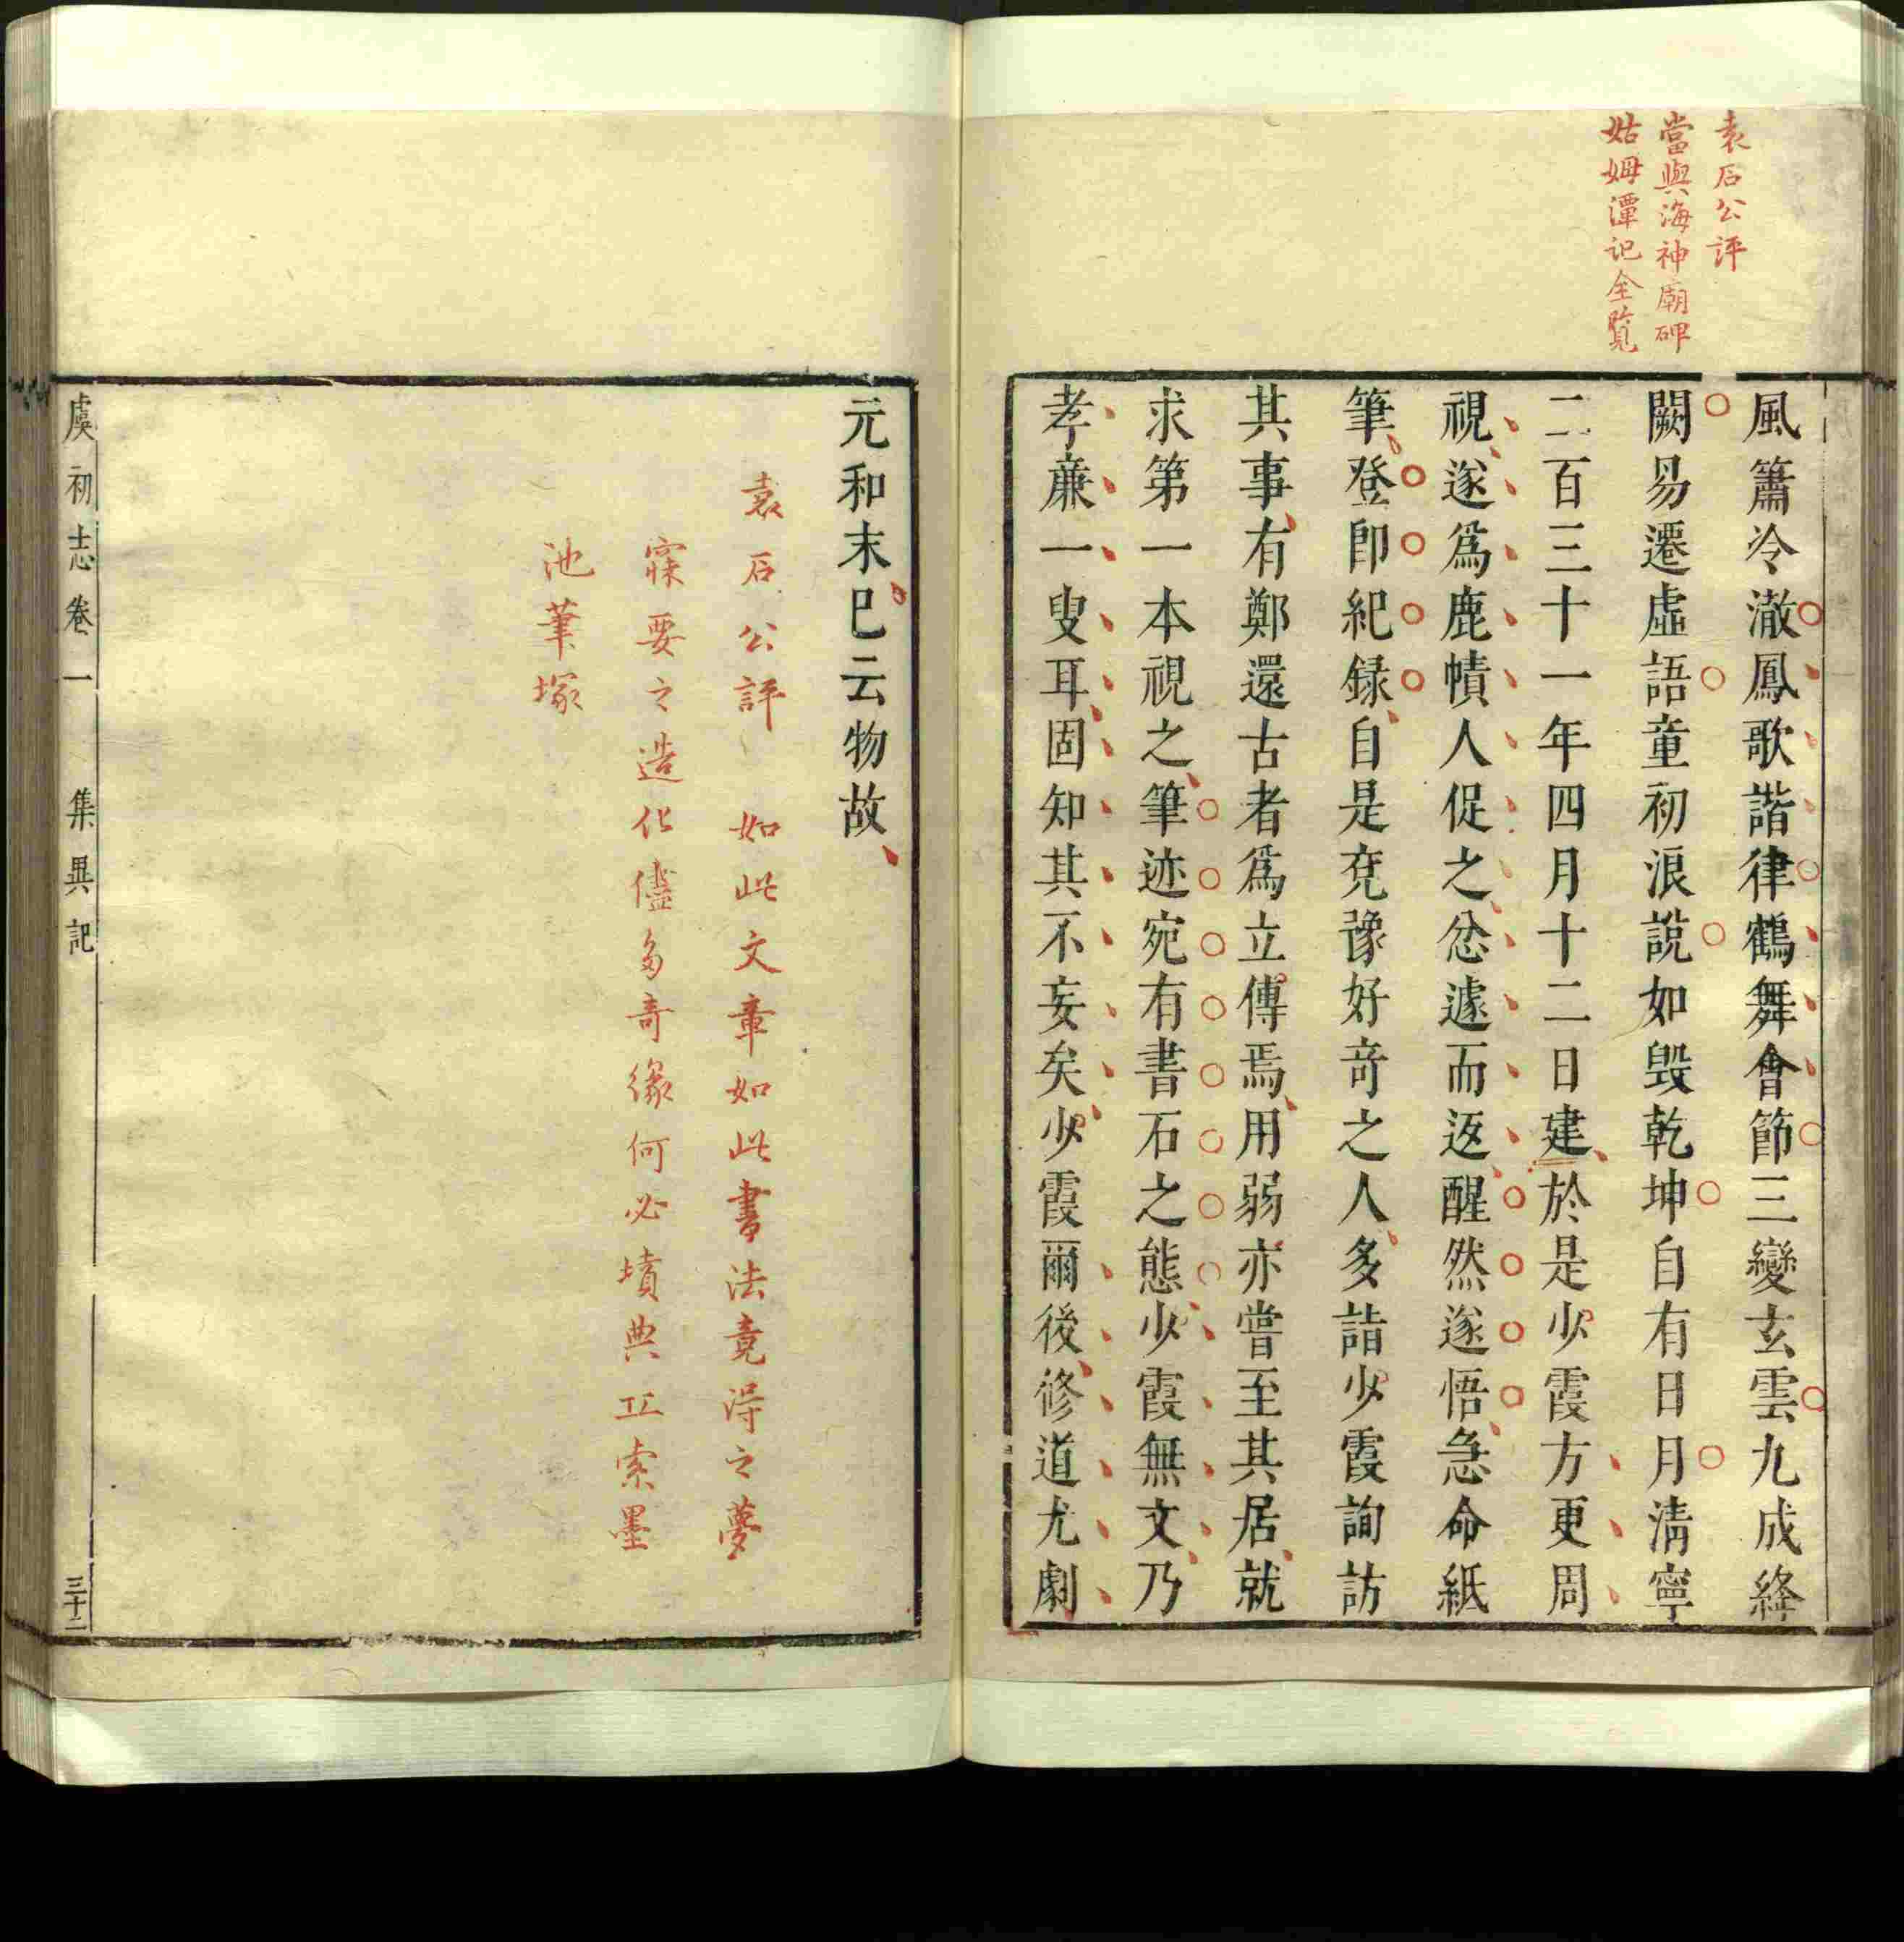 袁石公評
當與海神廟碑
姑姆潭記仝覧
風簫冷澈鳳歌諧律鶴舞會節三變玄雲九成絳
闕易遷虛語童初浪說如毀乾坤自有日月清寧
二百三十一年四月十二日建於是少霞方更周
視遂爲鹿幘人促之忿遽而返醒然遂悟急命紙
筆登卽紀録自是兗豫好竒之人多詣少霞詢訪
其事有鄭還古者爲立傳焉用弱亦嘗至其居就
求第一本視之筆迹宛有書石之態少霞無文乃
孝亷一叟耳固知其不妄矣少霞爾後修道尤劇
元和末巳云物故
袁石公評 如此文章如此書法竟得之夢
寐要之造化儘多奇緣何必墳典丘索墨
池筆塚
虞初志卷一 集異記 三十二